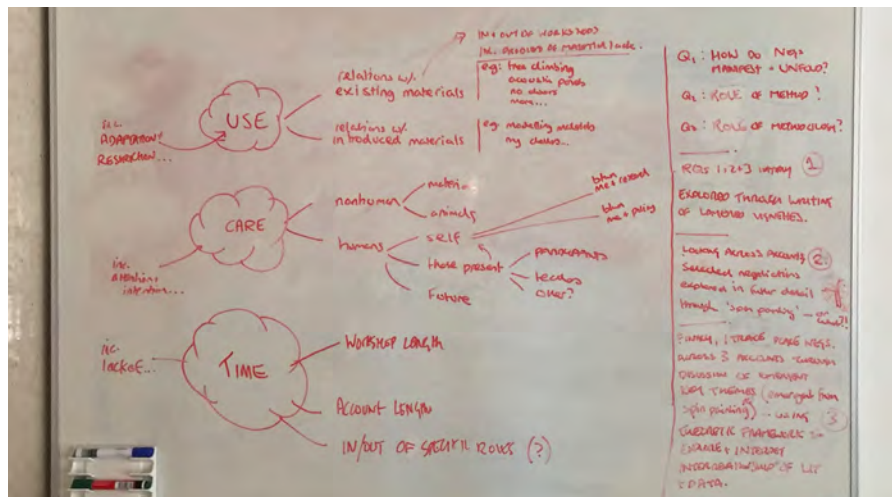 USE
inc.
ADAPTATION/
RESTRICTION...
relations w/.
existing materials
IN + OUT OF WORKSHOPS
inc. accounts of material lack.
eg: tree climbing
acoustic panels
no chairs
more...
relations w/.
introduced materials
eg. modelling materials
my clothes...
CARE
inc.
attention,
intention...
nonhuman
material
animals
humans
self
btwn
me + record
btwn
me + policy
those present
PARTICIPANTS
teachers
other?
Future
TIME
inc.
lack of...
WORKSHOP LENGTH
ACCOUNT LENGTH
IN/OUT OF SPECIFIC ROLES (?)
Q1: HOW DO NEGS
MANIFEST + UNFOLD?
Q2: ROLE OF METHOD?
Q3: ROLE OF METHODOLOGY?
RQS 1, 2 + 3
1
EXPLORED THROUGH WRITING
OF LAYERED VIGNETTES.
Looking ACROSS ACCOUNTS
2
Selected negotiations
explored in further detail
through 'spin painting'
FINALLY, I TRACE PLACE NEGS.
ACROSS 3 ACCOUNTS THROUGH
DISCUSSION OF EMERGENT
KEY THEMES (emergent from
spin painting) - using
3
THEORETIC FRAMEWORK to
EXPLORE + INTERPRET
INTERRELATIONSHIP OF LIT
+ DATA.